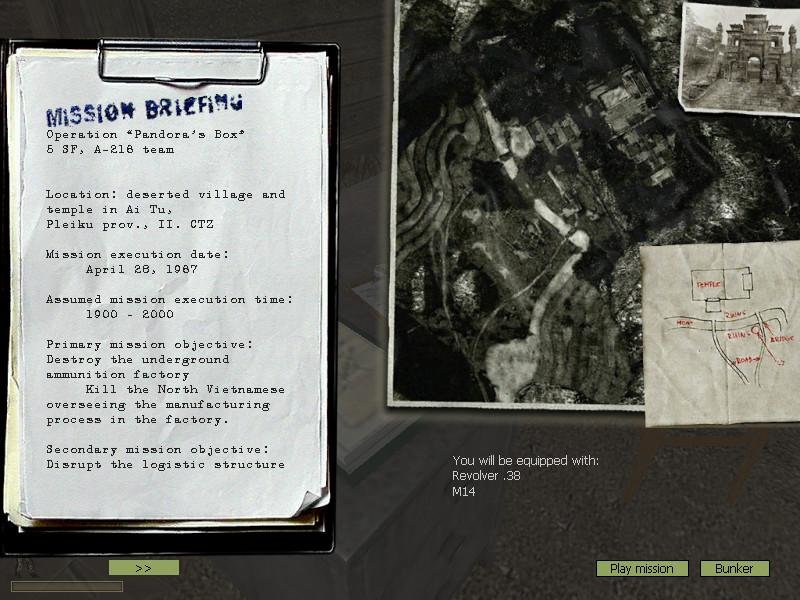 MISSION BRIEFING
Operation "Pandora's Box"
5 SF, A-216 team
Location: deserted village and
temple in Ai Tu,
Pleiku prov., II. CTZ
Mission execution date:
April 26, 1967
Assumed mission execution time:
1900 - 2000
Primary mission objective:
Destroy the underground
ammunition factory
Kill the North Vietnamese
overseeing the manufacturing
process in the factory.
Secondary mission objective:
Disrupt the logistic structure
TEMPLE
MOAT
RUINS
RUINS
BRIDGE
ROAD
You will be equipped with:
Revolver .38
M14
>>
Play mission
Bunker